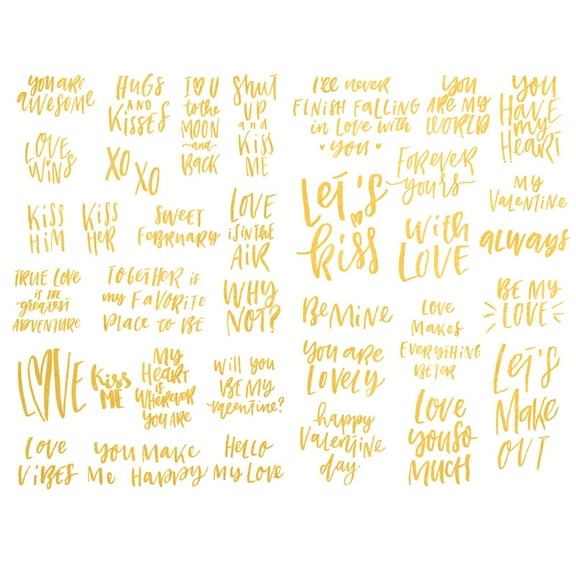 you are
awesome
HUGS
AND
KISSES
I ♡ U
to the
MOON
and
BACK
Shut
UP
and
KISS
ME
LOVE
WINS
XO
XO
KISS
HIM
KISS
HER
SWEET
FEBRUARY
LOVE
IS IN THE
AIR
TRUE LOVE
IS THE
greatest
ADVENTURE
TOGETHER is
my FAVORITE
PLACE to BE
WHY
NOT?
LOVE
Kiss
ME
MY
HEART
is
WHEREVER
YOU ARE
Will you
BE MY
valentine?
Love
VIBES
YOU MAKE
Me HAPPY
Hello
My Love
I'll never
FINISH FALLING
in Love with
• YOU •
YOU
ARE MY
WORLD
YOU
HAVE
my
HEART
Let's
kiss
FOREVER
yours
MY
Valentine
With
LOVE
always
Be MINE
LOVE
MAKES
EVERYTHING
BETER
BE MY
LOVE
YOU are
LOVELY
happy
VALENTINE
day
LOVE
YOU SO
MUCH
Let's
MAKE
OUT